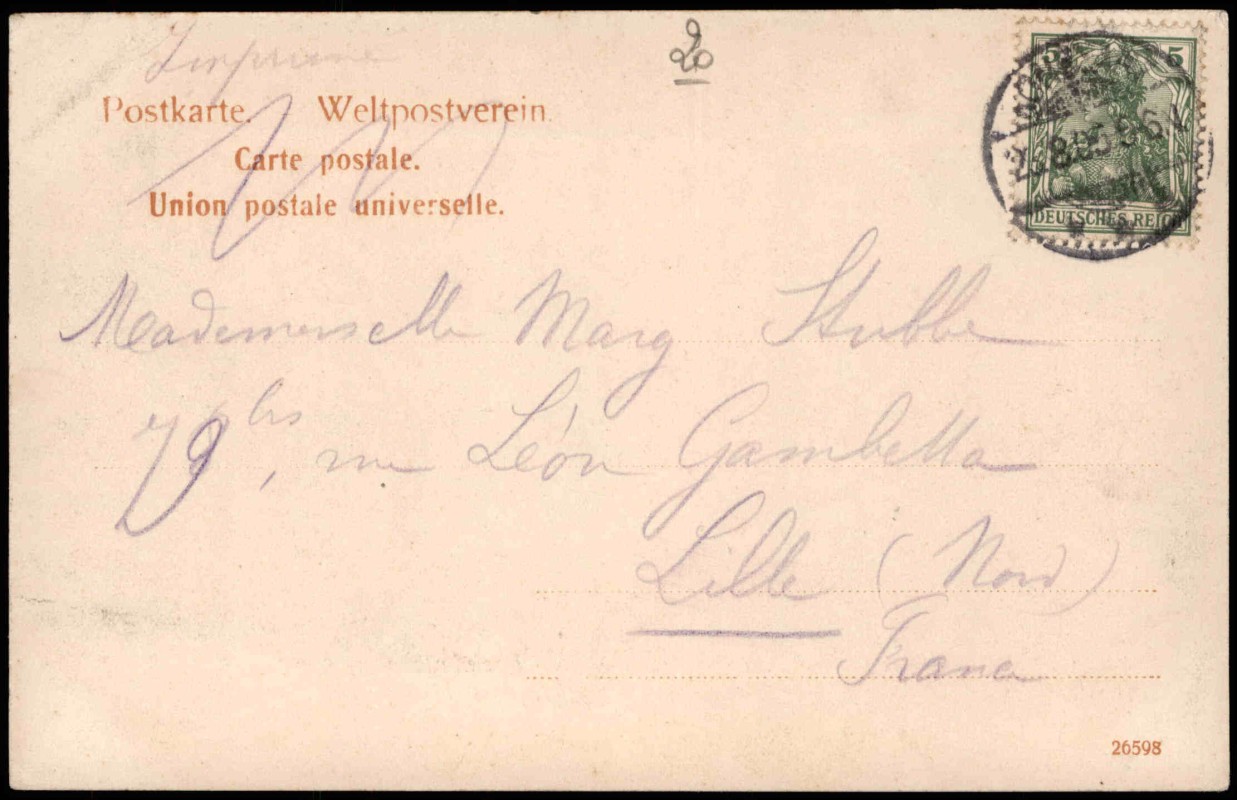 Imprimé
20
Postkarte. Weltpostverein.
Carte postale.
Union postale universelle.
5 5
DEUTSCHES REICH
Mademoiselle Marg Stubbe
bis
rue Léon Gambetta
Lille (Nord)
France
26598